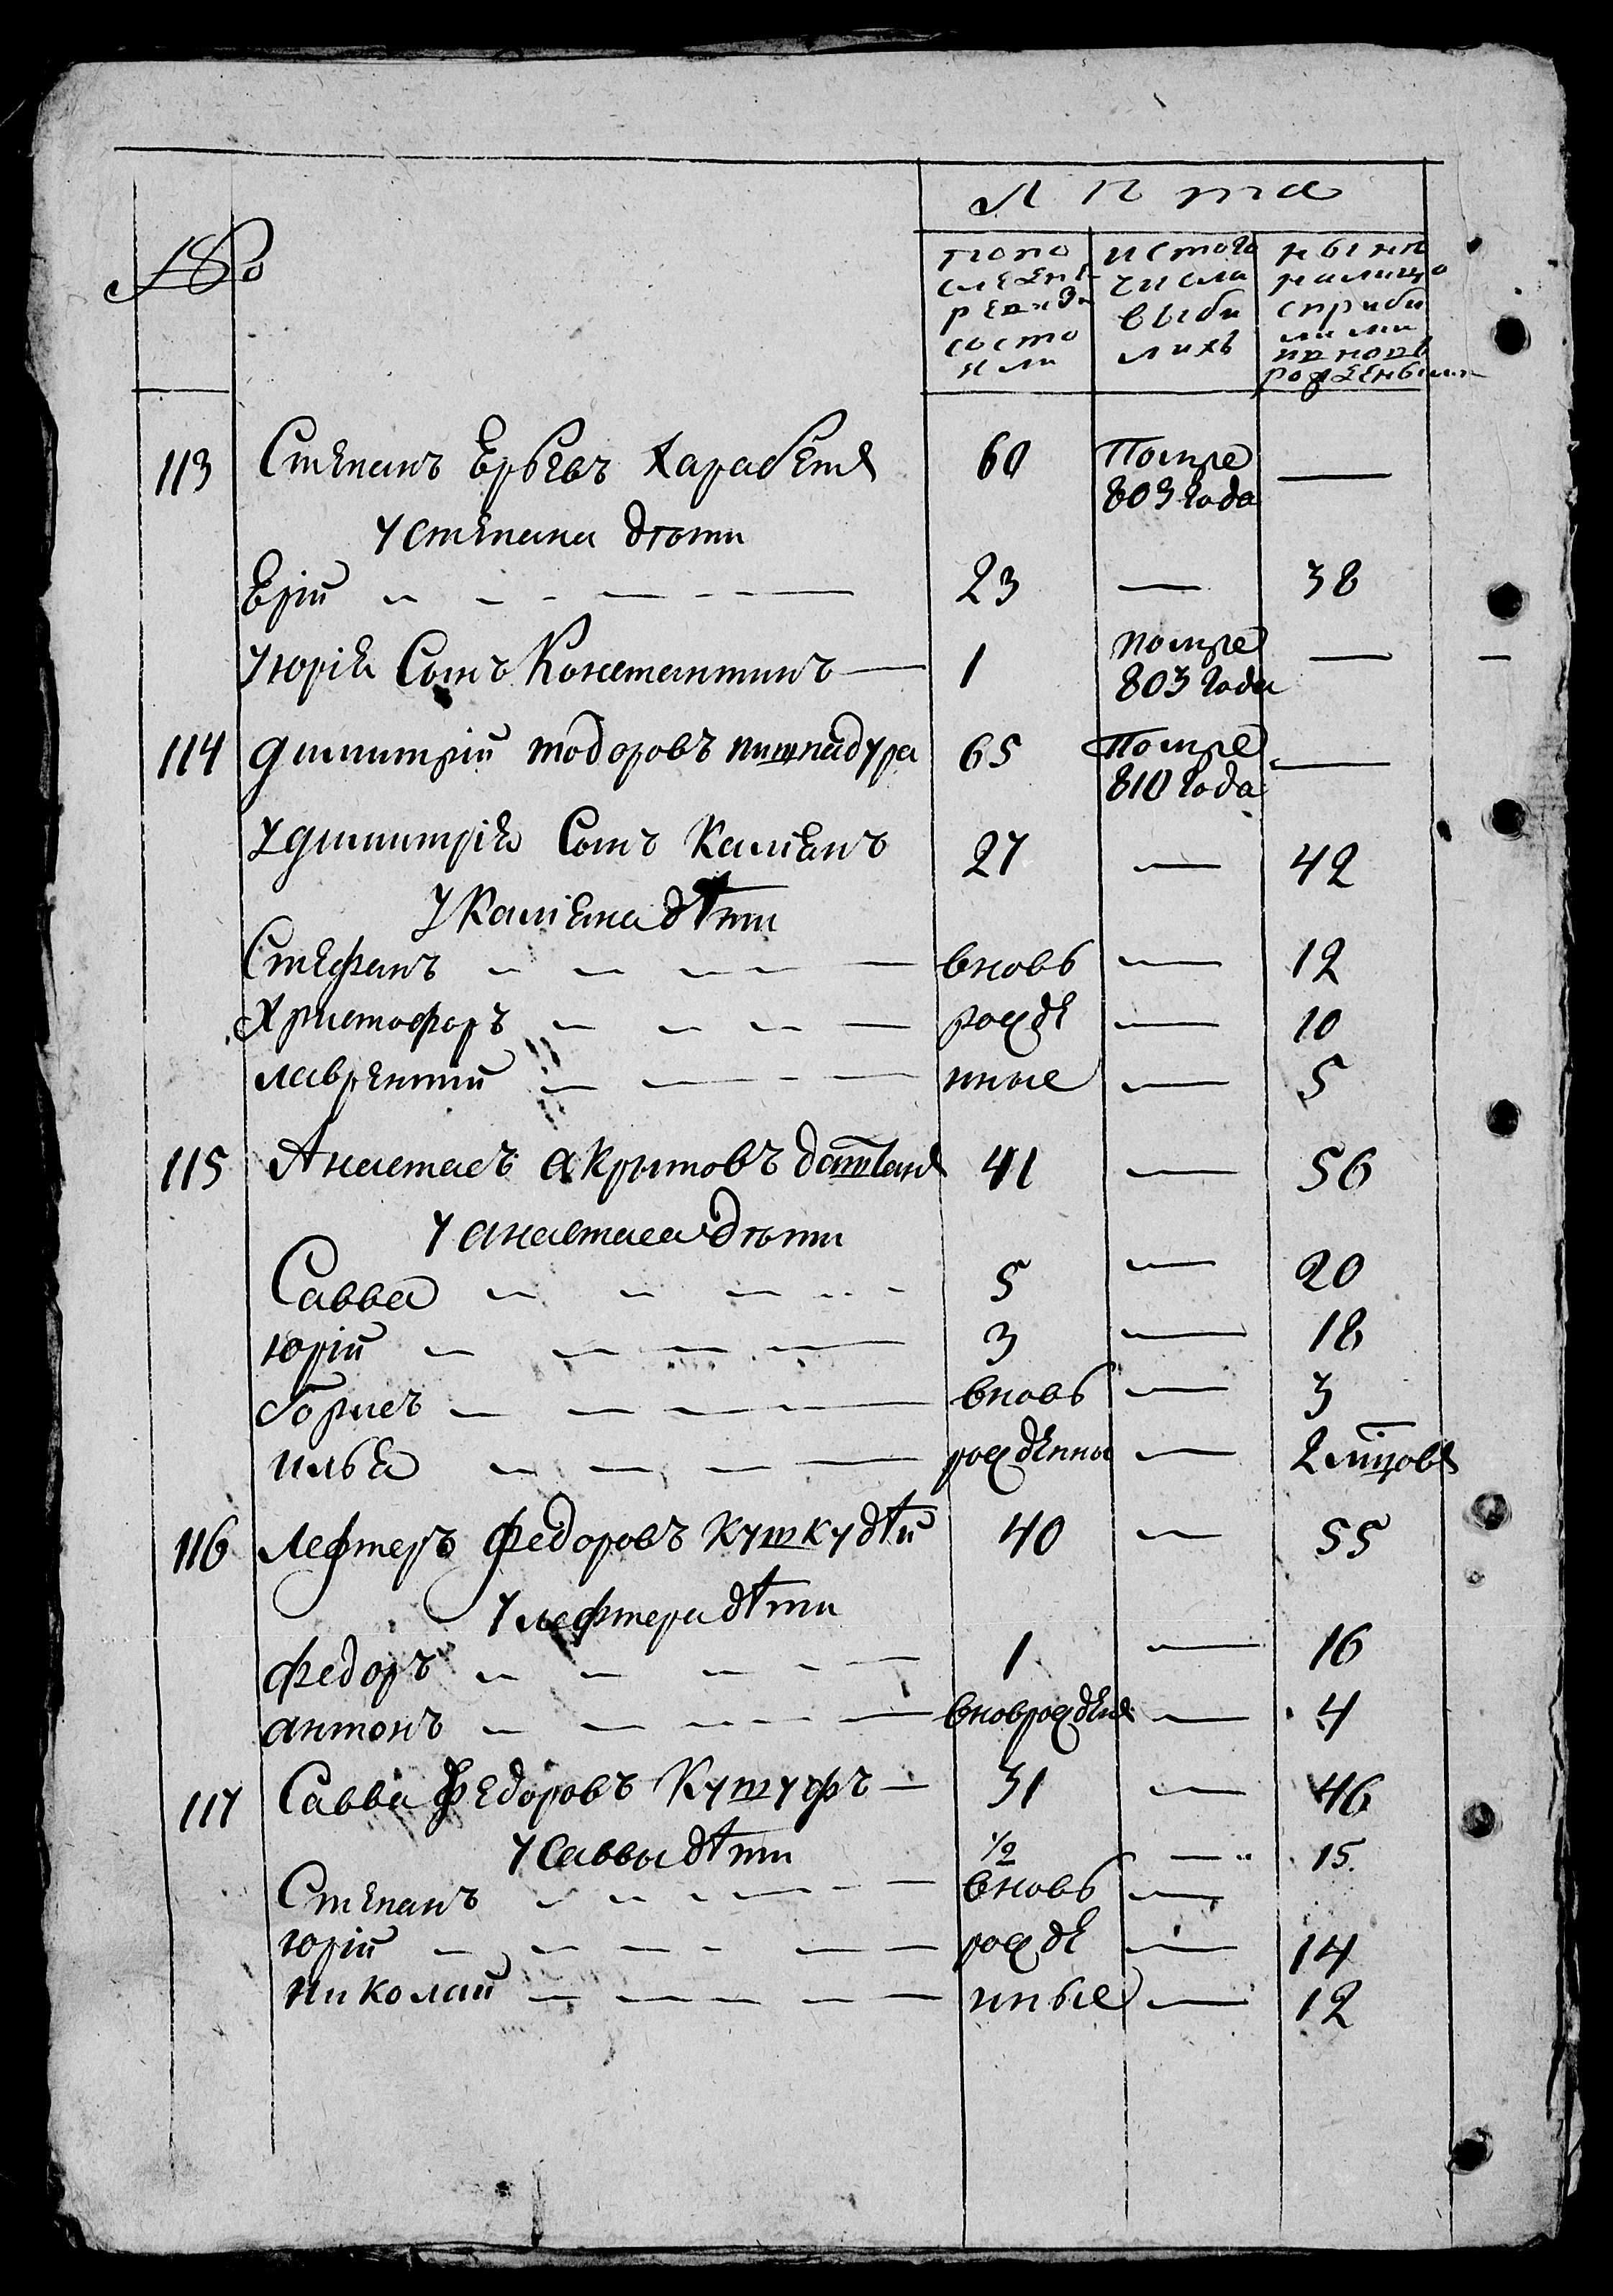 №
Лѣта
попо
следней
ревизи
состо
яли
истого
числа
выбы
лихъ
нынѣ
налицо
сприбы
лыми
иновь
рождеными
113 Степанъ Ерьевъ Харабетя 60 Помре —
803 года
устепана дѣти
Ерій 23 — 38
уюрія Сынъ Константинъ 1 помре —
803 года
114 димитрій тодоровъ пишпадура 65 Помре —
810 года
удимитрія Сынъ Каліанъ 27 — 42
у Каліана дѣти
Стефанъ вновь — 12
Христофоръ рожде — 10
лаврентій нные — 5
115 Анастасъ акрытовъ 41 — 56
у анастаса дѣти
Савва 5 — 20
юрій 3 — 18
борисъ вновь — 3
илья рожденны — 2 мѣцовъ
116 Лефтеръ Федоровъ кушкудѣй 40 — 55
у лефтера дѣти
Федоръ 1 — 16
антонъ вноврожденя — 4
117 Савва Федоровъ Кушуфъ 31 — 46
у Саввы дѣти 1/2 — 15
Степанъ вновь —
юрій рожде — 14
николай нные — 12